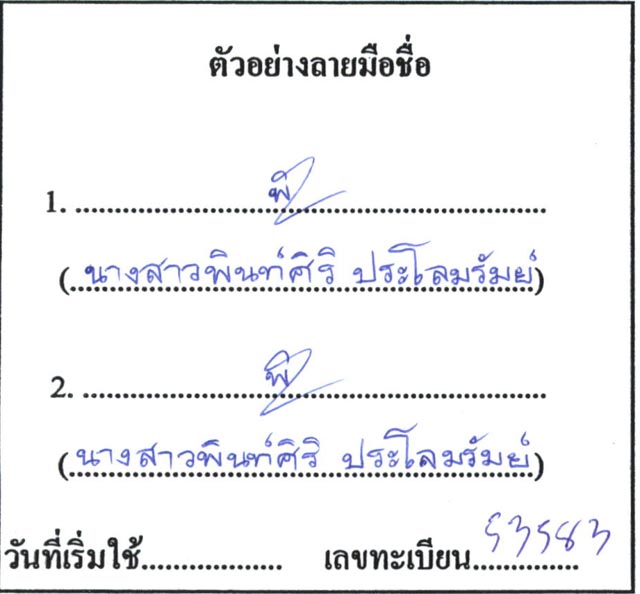 ตัวอย่างลายมือชื่อ
1. พิ
(นางสาวพินท์ศิริ ประโลมรัมย์)
2. พิ
(นางสาวพินท์ศิริ ประโลมรัมย์)
วันที่เริ่มใช้................. เลขทะเบียน 53583